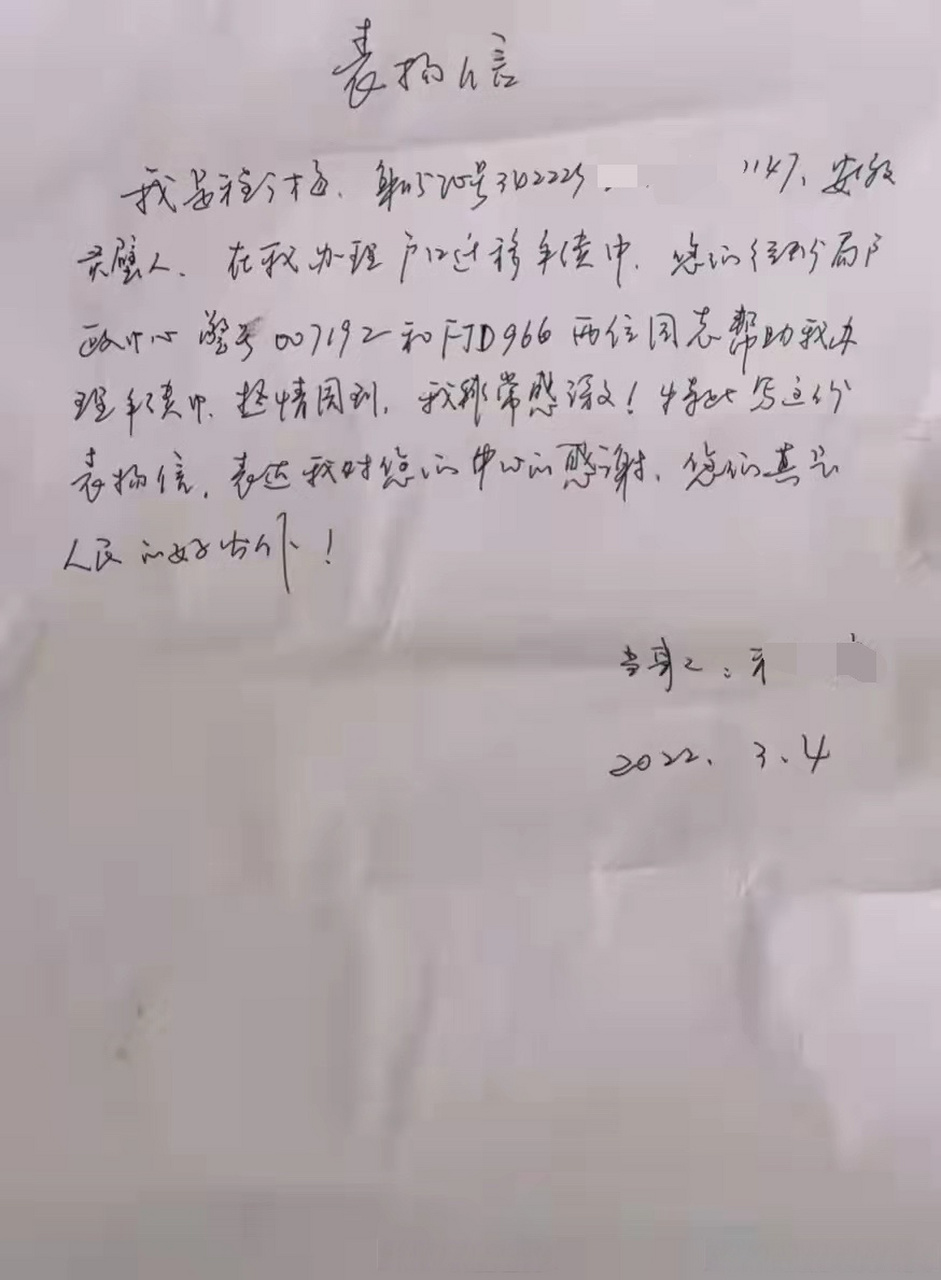 表扬信
我是程介梅、身份证号342225 1147、安徽
灵璧人、在我办理户口迁移手续中、您们经开分局户
政中心警号007192和FJD966两位同志帮助我办
理手续中、热情周到、我非常感谢！特此写这份
表扬信，表达我对您们中心的感谢、您们真是
人民的好
当事人：
2022.3.4